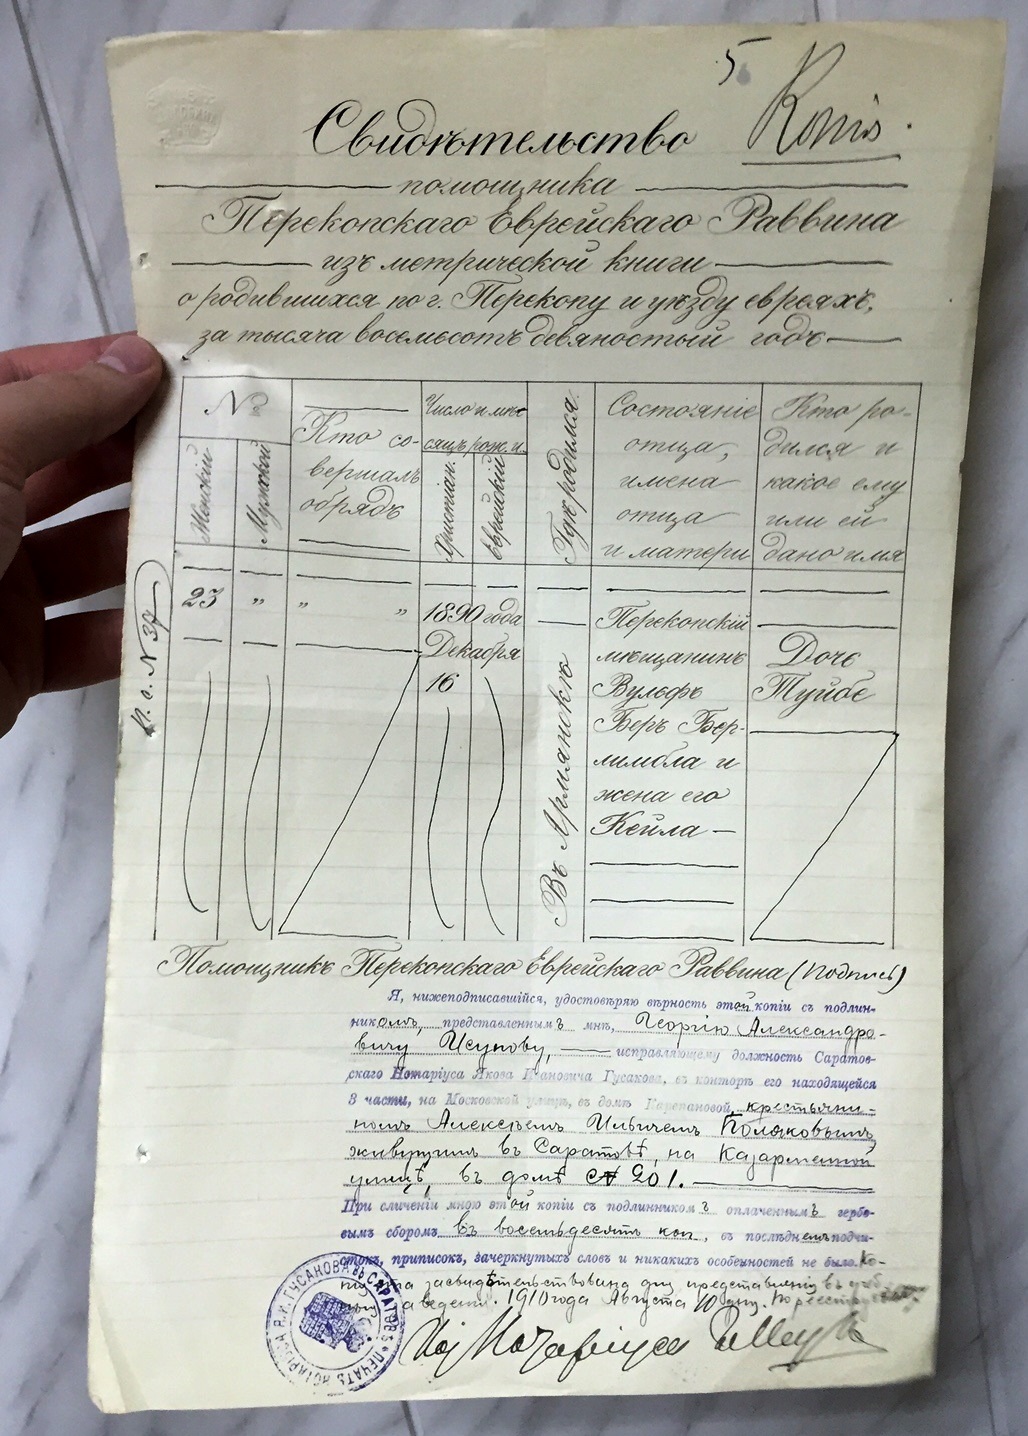 5
Копія.
Свидѣтельство
помощника
Перекопскаго Еврейскаго Раввина
изъ метрической книги
о родившихся по г. Перекопу и уѣзду евреяхъ,
за тысяча восемьсотъ девяностый годъ
№
Женскій
Мужской
Кто со-
вершалъ
обрядъ
Число и мѣ-
сяцъ рож. и.
Христіан.
Еврейскій
Гдѣ родился.
Состояніе
отца,
имена
отца
и матери
Кто ро-
дился и
какое ему
или ей
дано имя
23 „ „ „
1890 года
Декабря
16
Въ Армянскѣ
Перекопскій
мѣщанинъ
Вульфъ
Беръ Бер-
лимбла и
жена его
Кейла
Дочь
Туйбе
Помощникъ Перекопскаго Еврейскаго Раввина (подпись)
Я, нижеподписавшійся, удостовѣряю вѣрность этой копіи съ подлин-
никомъ, представленнымъ мнѣ, Георгію Александро-
вичу Исупову, исправляющему должность Саратов-
скаго Нотаріуса Якова Ивановича Гусакова, въ конторѣ его находящейся
3 части, на Московской улицѣ, въ домѣ Карепановой, крестьяни-
номъ Алексѣемъ Ильичемъ Поляковымъ,
живущимъ въ Саратовѣ, на Казарменной
улицѣ, въ домѣ № 201.
При сличеніи мною этой копіи съ подлинникомъ оплаченнымъ гербо-
вымъ сборомъ въ восемьдесятъ коп, въ послѣднемъ подчи-
стокъ, приписокъ, зачеркнутыхъ словъ и никакихъ особенностей не было. Ко-
пія эта засвидѣтельствована для представленія въ учеб-
ныя заведенія. 1910 года Августа 10 дня. По реестру
И д Нотаріуса
ПЕЧАТЬ НОТАРІУСА Я. И. ГУСАКОВА ВЪ САРАТОВѢ